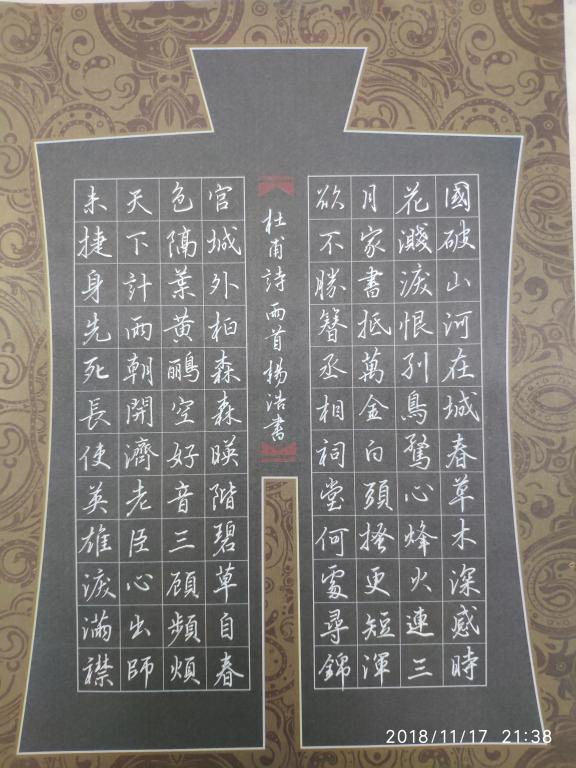 國破山河在城春草木深感時
花濺淚恨別鳥驚心烽火連三
月家書抵萬金白頭搔更短渾
欲不勝簪丞相祠堂何處尋錦
杜甫詩兩首楊浩書
官城外柏森森暎階碧草自春
色隔葉黃鸝空好音三顧頻煩
天下計兩朝開濟老臣心出師
未捷身先死長使英雄淚滿襟
2018/11/17 21:38